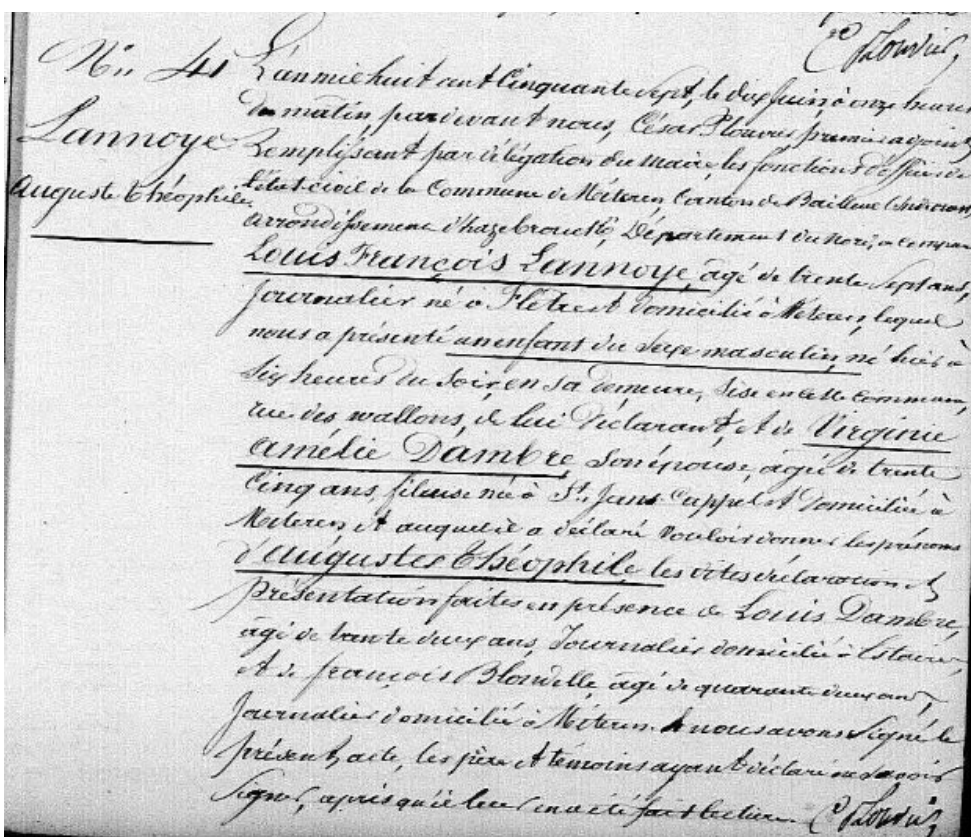 No 41
Lannoye
Auguste Théophile
L'an mil huit cent Cinquante sept, le dix Juin, à onze heures
du matin, pardevant nous, César Plouvier, premier adjoint
Remplissant par délégation du maire, les fonctions d'officier de
l'état-civil de la Commune de Méteren Canton de Bailleul
arrondissement d'hazebrouck, Département du Nord, a comparu
Louis François Lannoye, âgé de trente sept ans,
Journalier né à Flêtre et domicilié à Méteren, lequel
nous a présenté un enfant du sexe masculin, né hier à
six heures du soir, en sa demeure, sise en cette Commune,
rue des wallons, de lui déclarant, et de Virginie
Amélie Dambre, son épouse, âgée de trente
Cinq ans, fileuse née à St. Jans-Cappel et domiciliée à
Méteren et auquel il a déclaré vouloir donner les prénoms
d'Augustes Théophile, les dites déclaration et
présentation faites en présence de Louis Dambre,
âgé de trente deux ans, Journalier domicilié à Estaires,
et de françois Blondelle, âgé de quarante deux ans,
Journalier domicilié à Méteren. Et nous avons signé le
présent acte, les père et témoins ayant déclaré ne savoir
signer, après qu'il leur en a été fait lecture. Cr Plouvier